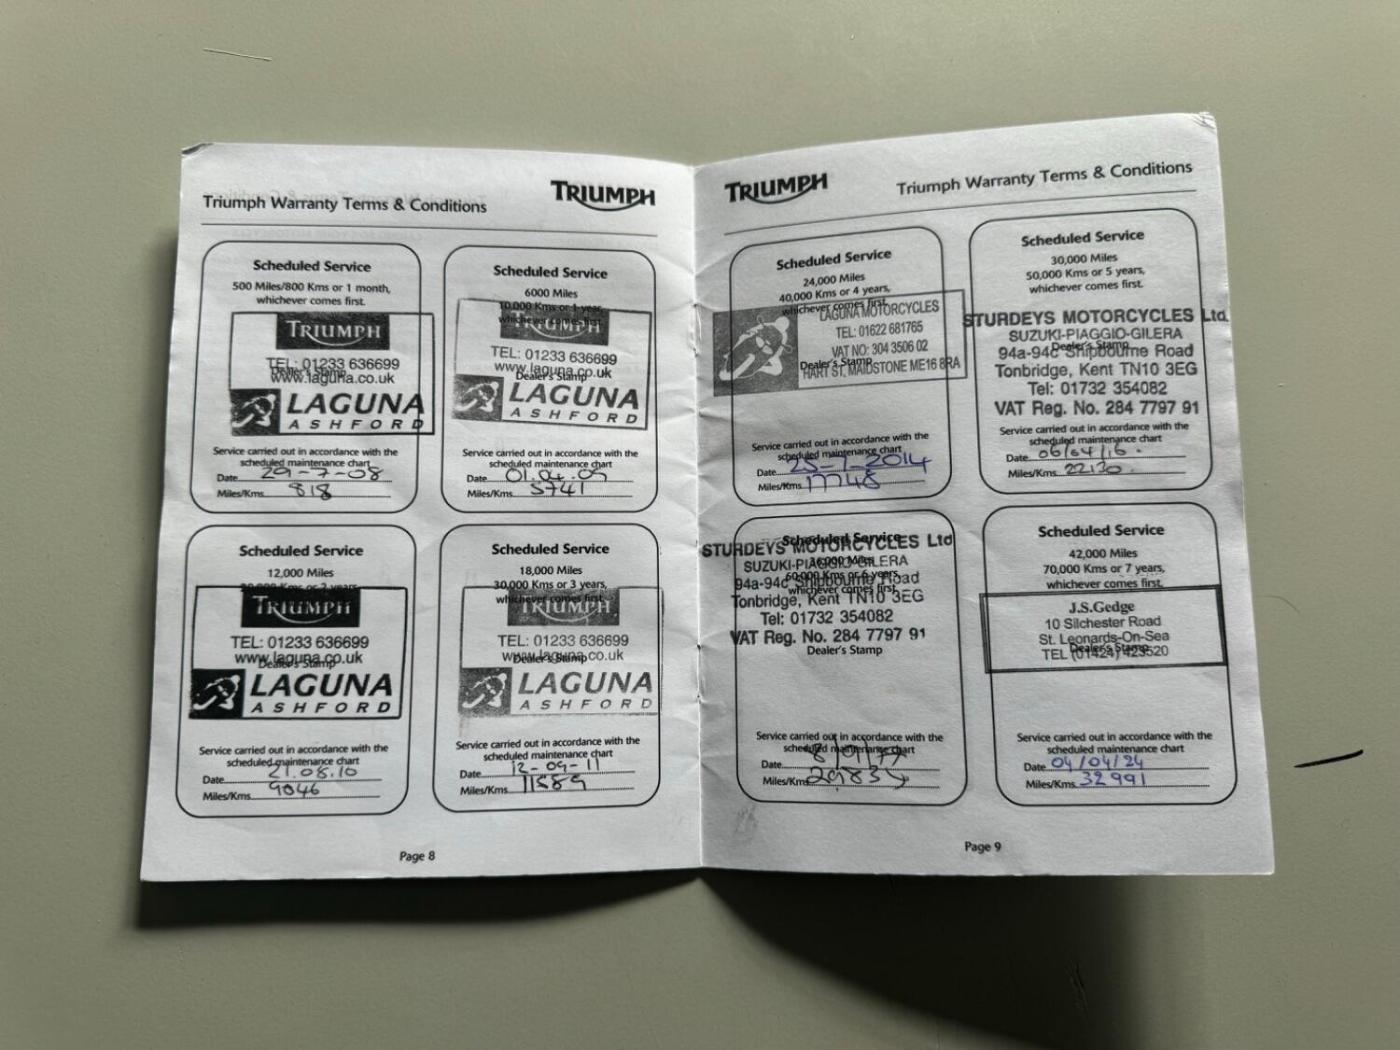 Triumph Warranty Terms & Conditions
TRIUMPH
Scheduled Service
500 Miles/800 Kms or 1 month,
whichever comes first.
TRIUMPH
TEL: 01233 636699
Dealer's Stamp
www.laguna.co.uk
LAGUNA
ASHFORD
Service carried out in accordance with the
scheduled maintenance chart
Date 29-7-08
Miles/Kms 818
Scheduled Service
6000 Miles
10,000 Kms or 1 year,
whichever comes first.
TRIUMPH
TEL: 01233 636699
www.laguna.co.uk
Dealer's Stamp
LAGUNA
ASHFORD
Service carried out in accordance with the
scheduled maintenance chart
Date 01.04.09
Miles/Kms 5741
Scheduled Service
12,000 Miles
20,000 Kms or 2 years,
TRIUMPH
TEL: 01233 636699
www.laguna.co.uk
Dealer's Stamp
LAGUNA
ASHFORD
Service carried out in accordance with the
scheduled maintenance chart
Date 21.08.10
Miles/Kms 9046
Scheduled Service
18,000 Miles
30,000 Kms or 3 years,
whichever comes first.
TRIUMPH
TEL: 01233 636699
www.laguna.co.uk
Dealer's Stamp
LAGUNA
ASHFORD
Service carried out in accordance with the
scheduled maintenance chart
Date 12-09-11
Miles/Kms 11589
Page 8
TRIUMPH
Triumph Warranty Terms & Conditions
Scheduled Service
24,000 Miles
40,000 Kms or 4 years,
whichever comes first.
LAGUNA MOTORCYCLES
TEL: 01622 681765
VAT NO: 304 3506 02
Dealer's Stamp
HART ST, MAIDSTONE ME16 8RA
Service carried out in accordance with the
scheduled maintenance chart
Date 25-7-2014
Miles/Kms 17748
Scheduled Service
30,000 Miles
50,000 Kms or 5 years,
whichever comes first.
STURDEYS MOTORCYCLES Ltd
SUZUKI-PIAGGIO-GILERA
Dealer's Stamp
94a-94c Shipbourne Road
Tonbridge, Kent TN10 3EG
Tel: 01732 354082
VAT Reg. No. 284 7797 91
Service carried out in accordance with the
scheduled maintenance chart
Date 06/04/16.
Miles/Kms 22130.
Scheduled Service
STURDEYS MOTORCYCLES Ltd
36,000 Miles
SUZUKI-PIAGGIO-GILERA
60,000 Kms or 6 years,
94a-94c Shipbourne Road
whichever comes first.
Tonbridge, Kent TN10 3EG
Tel: 01732 354082
VAT Reg. No. 284 7797 91
Dealer's Stamp
Service carried out in accordance with the
scheduled maintenance chart
Date
Miles/Kms
Scheduled Service
42,000 Miles
70,000 Kms or 7 years,
whichever comes first.
J.S.Gedge
10 Silchester Road
St. Leonards-On-Sea
Dealer's Stamp
TEL (01424) 423520
Service carried out in accordance with the
scheduled maintenance chart
Date 04/04/24
Miles/Kms 32991
Page 9